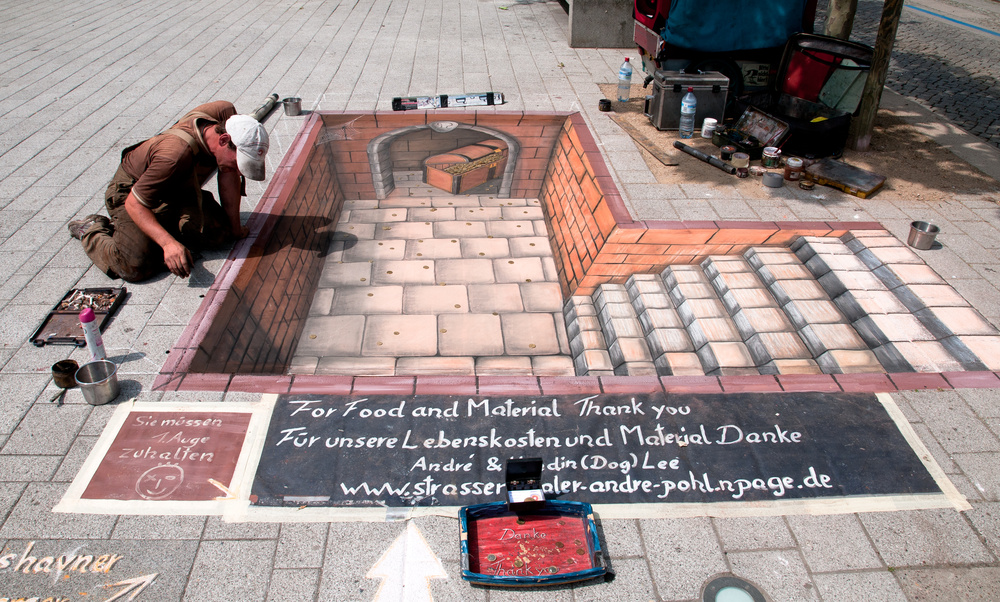 For Food and Material Thank you
Für unsere Lebenskosten und Material Danke
André & (Dog) Lee
www.strassen aler-andre-pohl.npage.de
Sie müssen
1 Auge
zuhalten
Danke
Thank you
shayner